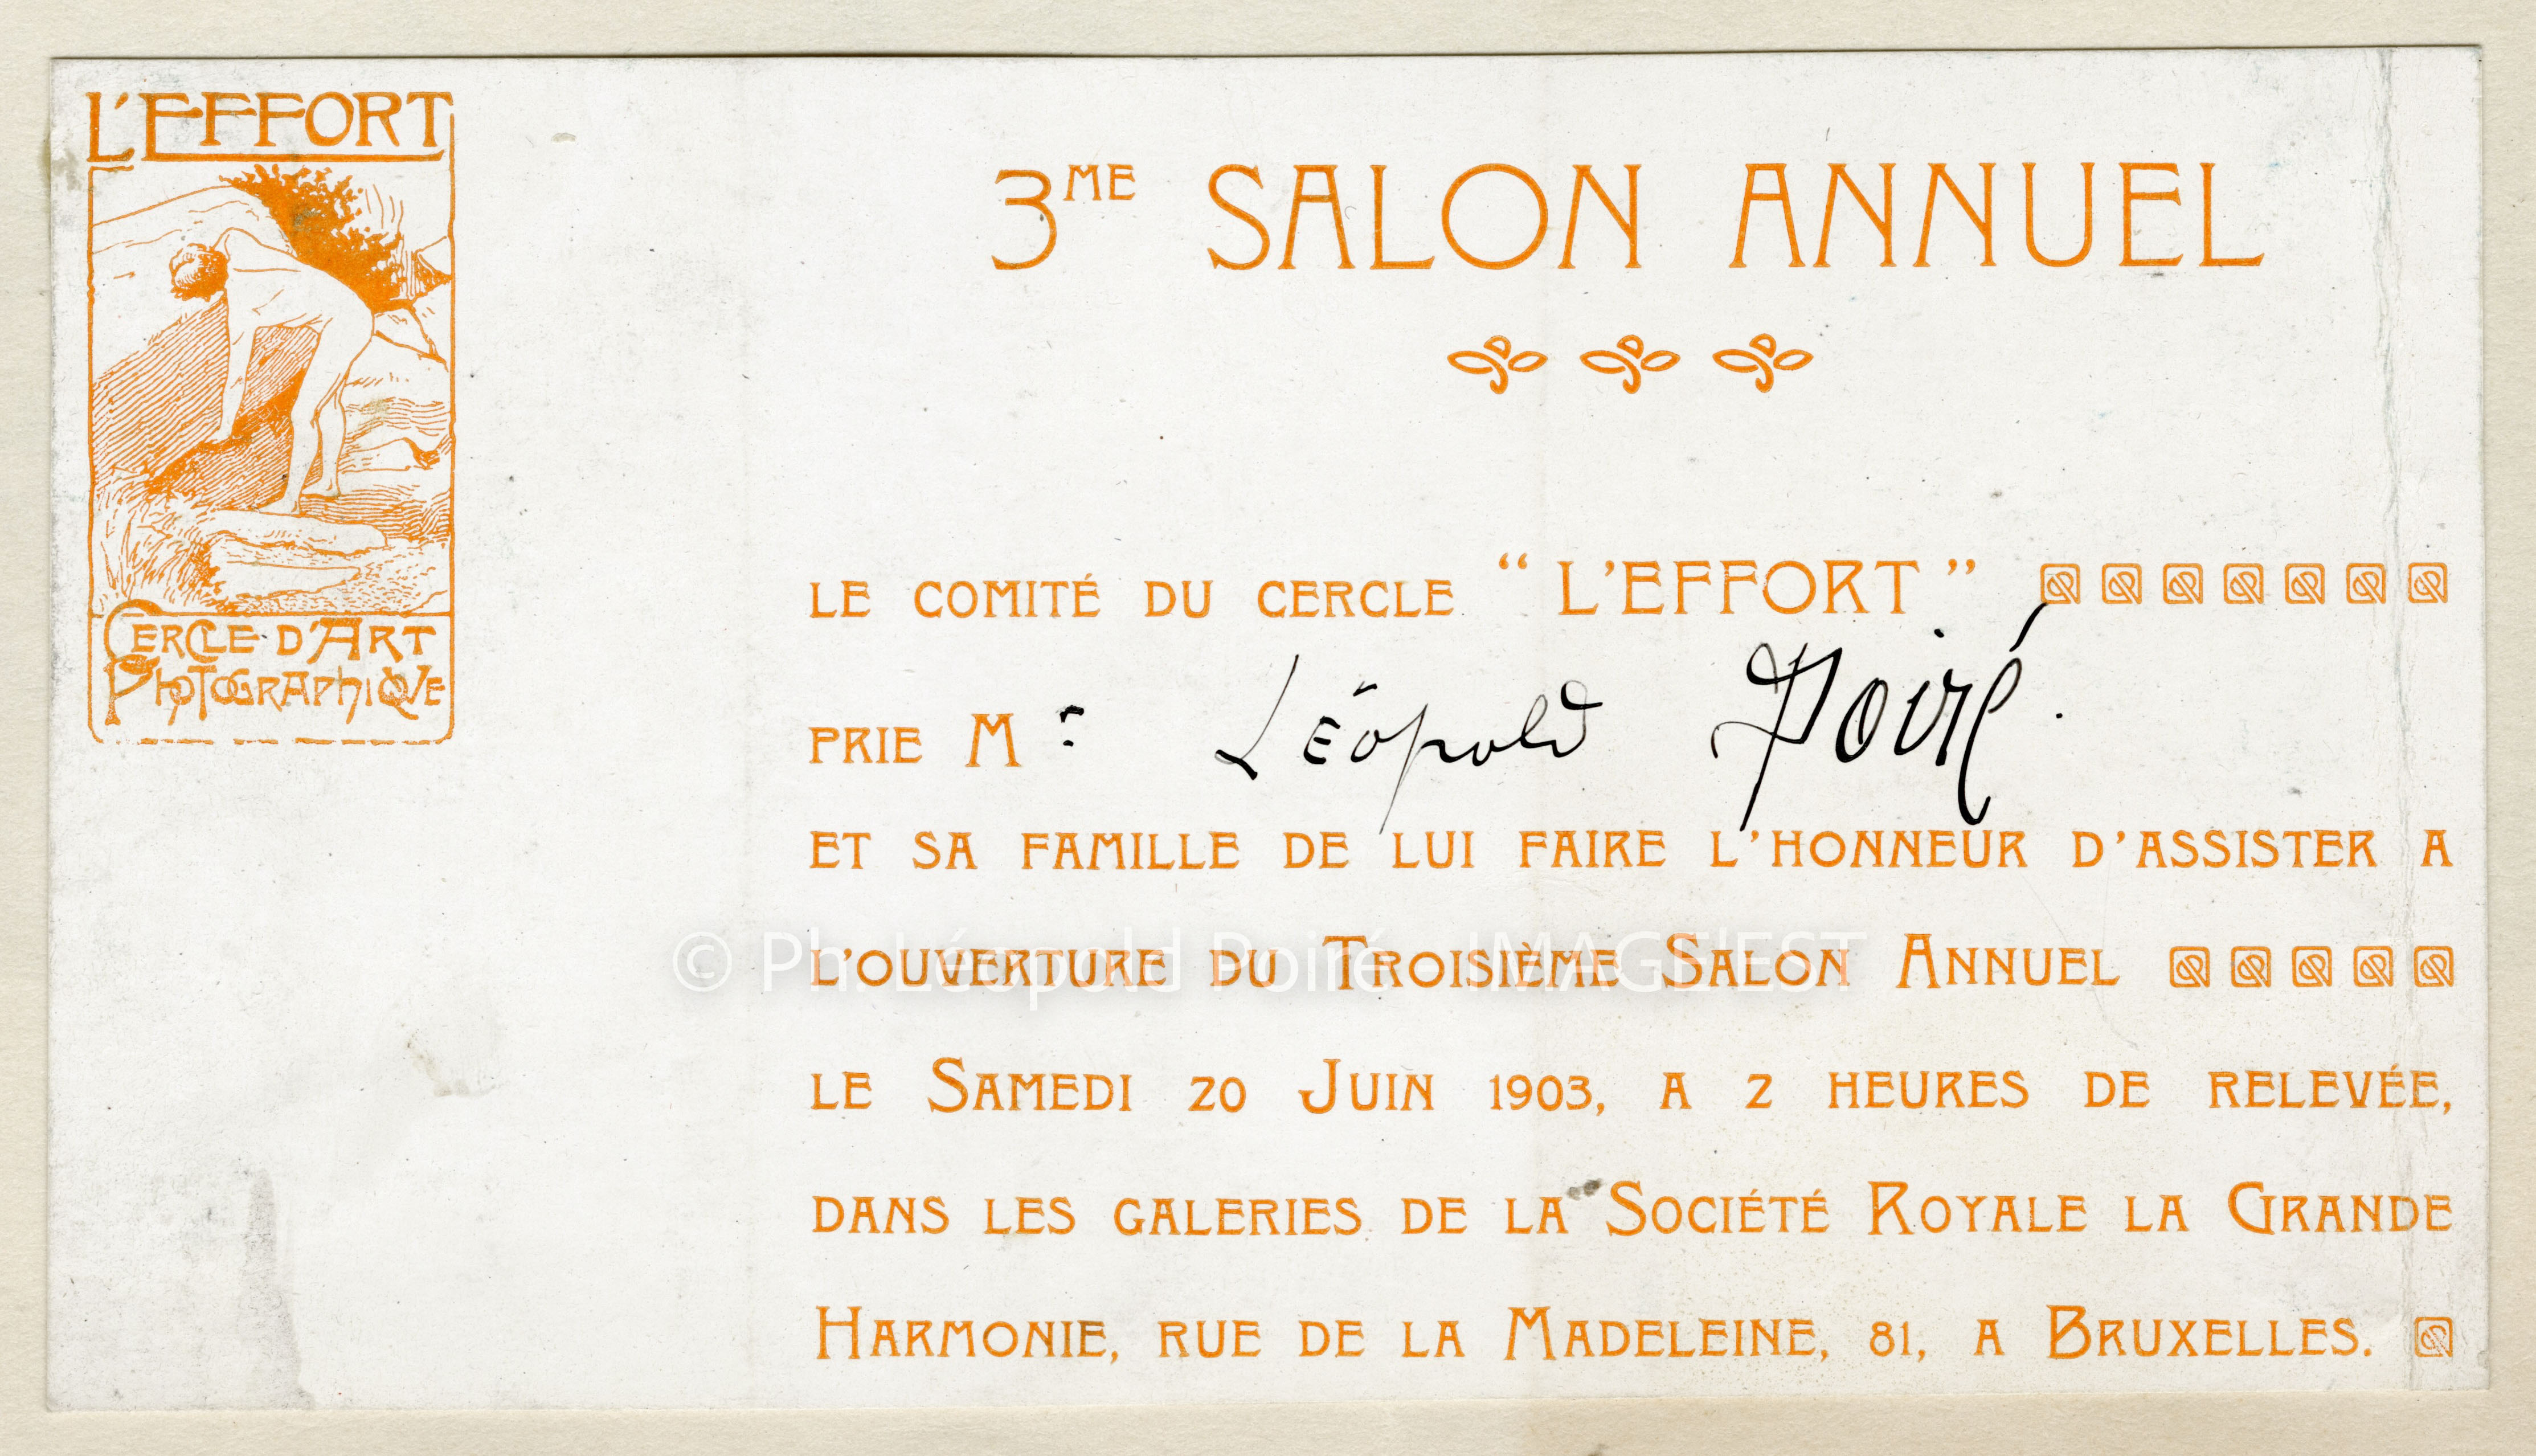 L'EFFORT
CERCLE D'ART
PHOTOGRAPHIQUE
3ME SALON ANNUEL
LE COMITÉ DU CERCLE “ L'EFFORT ”
PRIE Mr Léopold Poiré.
ET SA FAMILLE DE LUI FAIRE L'HONNEUR D'ASSISTER A
L'OUVERTURE DU TROISIÈME SALON ANNUEL
© Ph. Léopold Poiré - IMAGE'EST
LE SAMEDI 20 JUIN 1903, A 2 HEURES DE RELEVÉE,
DANS LES GALERIES DE LA SOCIÉTÉ ROYALE LA GRANDE
HARMONIE, RUE DE LA MADELEINE, 81, A BRUXELLES.